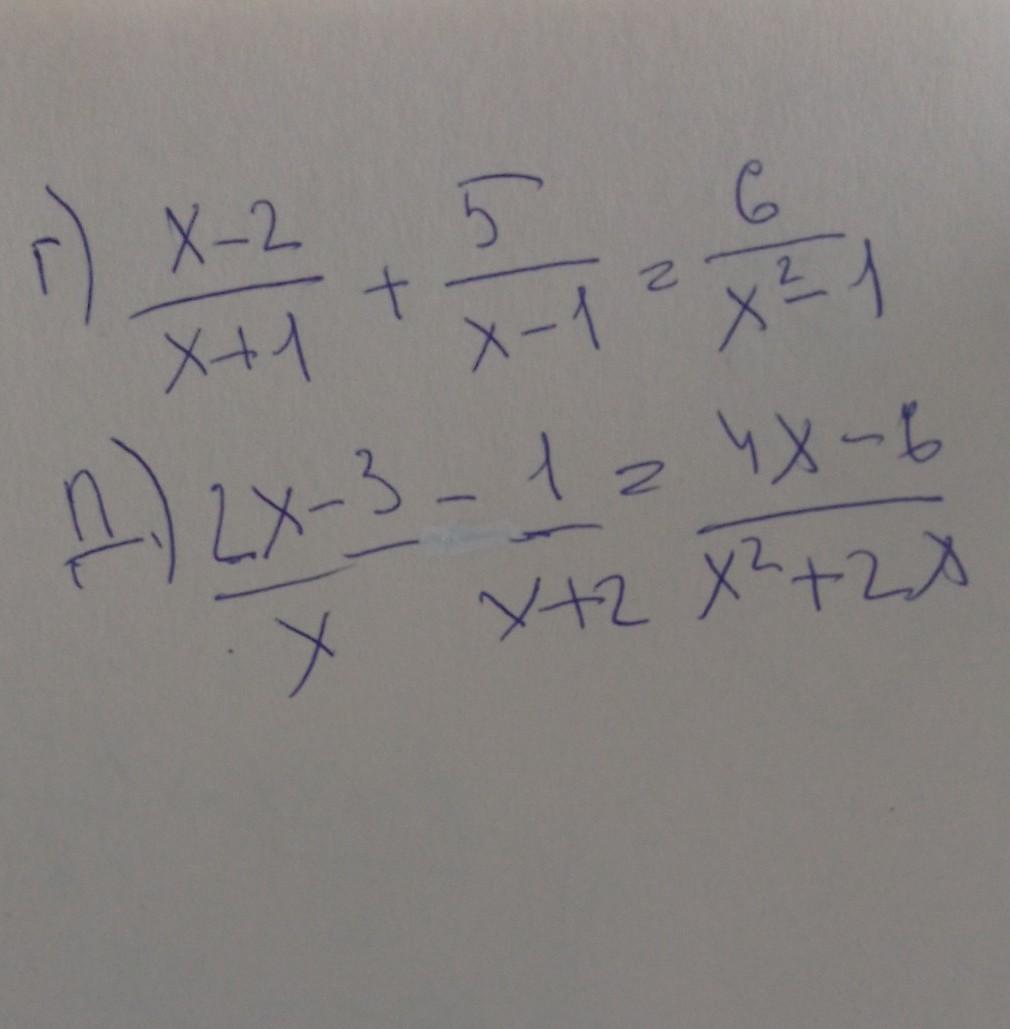 г) (x-2)/(x+1) + 5/(x-1) = 6/(x²-1)
д) (2x-3)/x - 1/(x+2) = (4x-6)/(x²+2x)